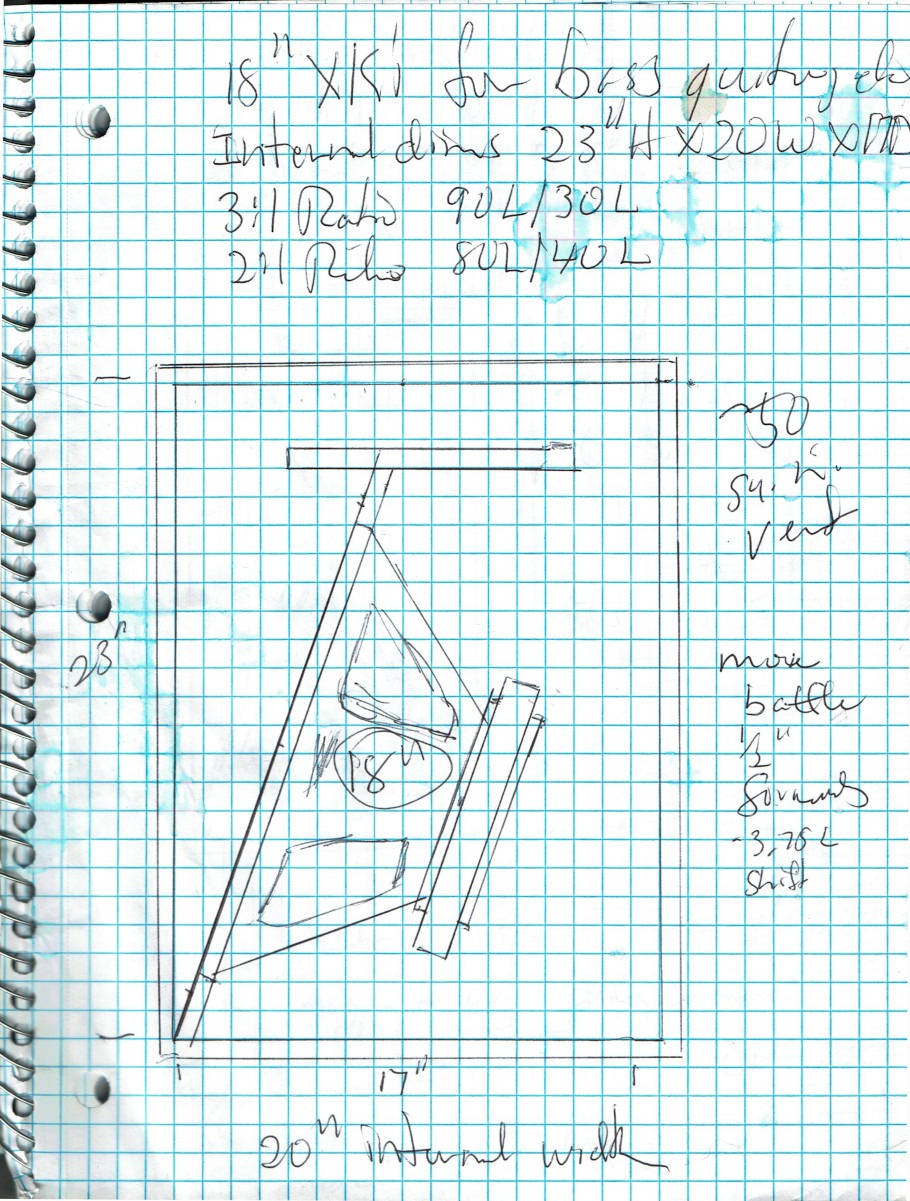 18" XKi for bass guitar, etc
Internal dims 23" H x 20W x 17D
3:1 Ratio 90L/30L
2:1 Ratio 80L/40L
~50
sq. in.
vent
23"
more
baffle
1/2"
forwards
-3.75L
shift
18"
17"
20" internal width